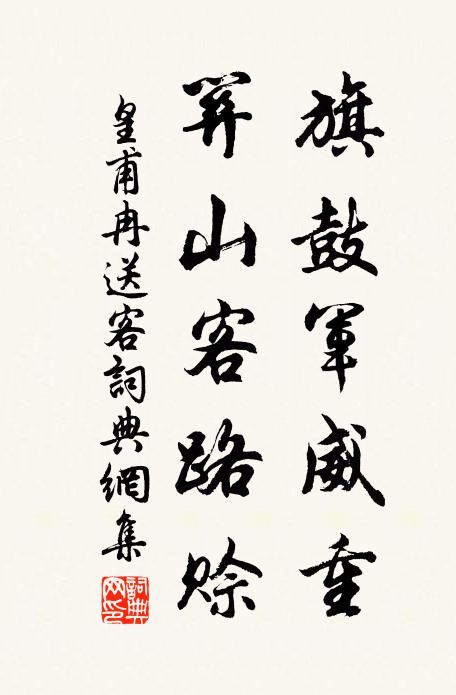 旗鼓軍威重
關山客路賒
皇甫冉送客詞典網集
詞典
网印